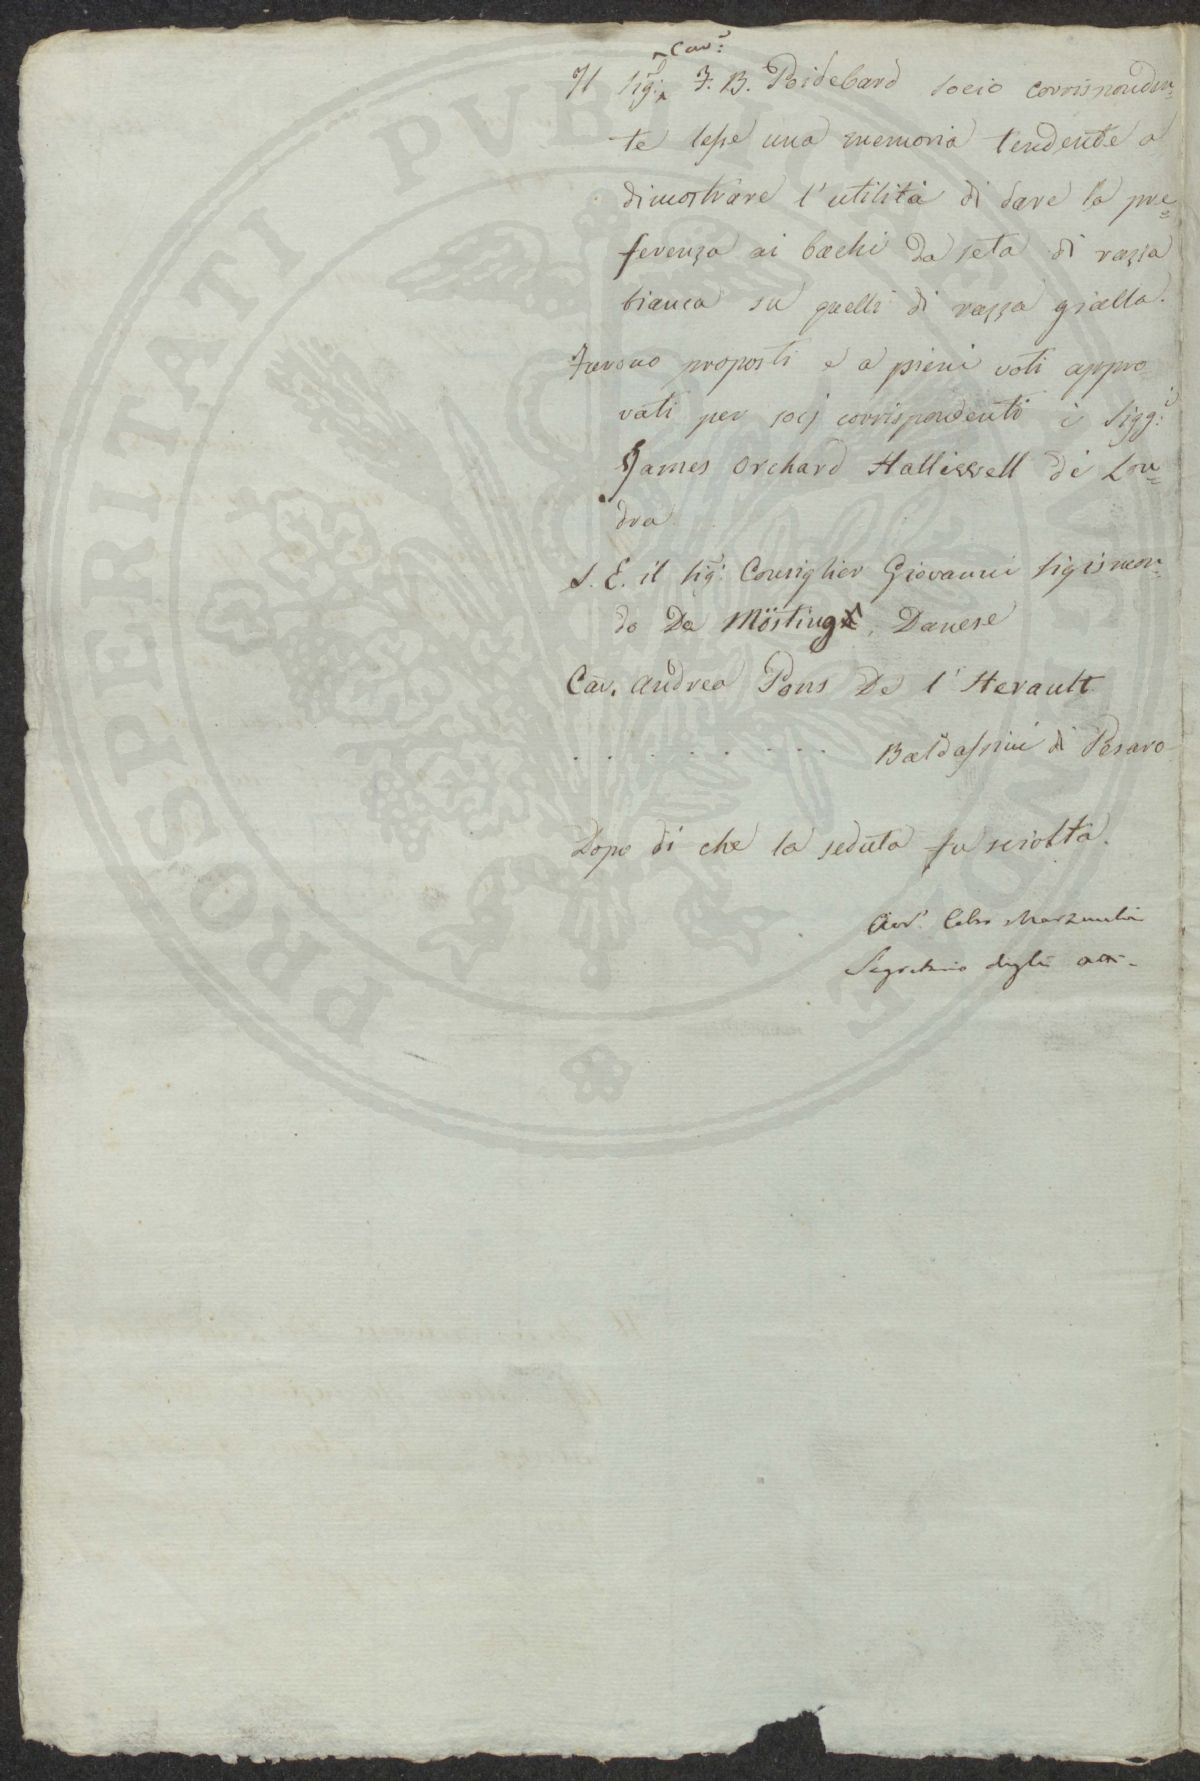 Cav.r
Il Sig.r F. B. Poidebard socio corrisponden=
te lesse una memoria tendente a
dimostrare l'utilità di dare la pre=
ferenza ai bachi da seta di razza
bianca su quelli di razza gialla.
Furono proposti e a pieni voti appro
vati per socj corrispondenti i Sigg.i
James Orchard Halliwell di Lon=
dra
S. E. il Sig.r Consiglier Giovanni Sigismon=
do De Mösting, Danese
Cav. Andrea Pons De l'Herault
. . . . . . . . . Baldassini di Pesaro
Dopo di che la seduta fu sciolta.
Avv. Celso Marzucchi
Segretario degli atti.
PROSPERITATI PVBLICAE AVGENDAE